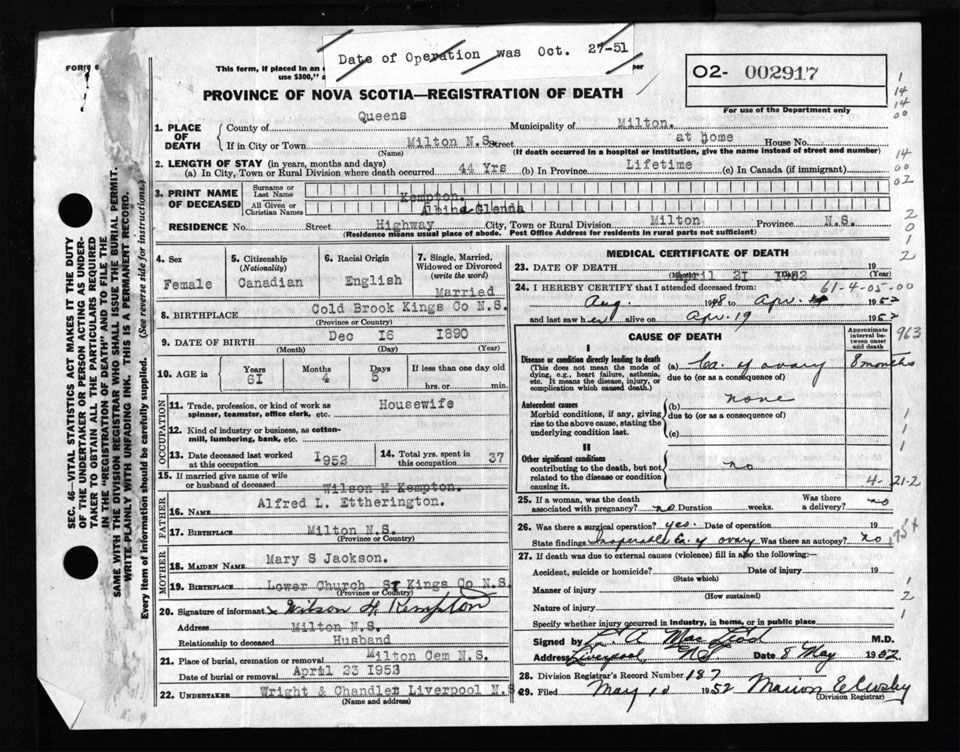 Date of Operation was Oct. 27-51
FORM 6
This form, if placed in an e
per
use $300," a
02- 002917
For use of the Department only
PROVINCE OF NOVA SCOTIA—REGISTRATION OF DEATH
1. PLACE OF DEATH
County of Queens Municipality of Milton.
If in City or Town Milton N.S. Street at home House No.
(Name) (If death occurred in a hospital or institution, give the name instead of street and number)
2. LENGTH OF STAY (in years, months and days)
(a) In City, Town or Rural Division where death occurred 44 Yrs (b) In Province Lifetime (c) In Canada (if immigrant)
3. PRINT NAME OF DECEASED
Surname or Last Name Kempton.
All Given or Christian Names Albina Glenda
RESIDENCE No. Street Highway City, Town or Rural Division Milton Province N.S.
(Residence means usual place of abode. Post Office Address for residents in rural parts not sufficient)
4. Sex Female
5. Citizenship (Nationality) Canadian
6. Racial Origin English
7. Single, Married, Widowed or Divorced (write the word) Married
8. BIRTHPLACE Cold Brook Kings Co N.S.
(Province or Country)
9. DATE OF BIRTH Dec 16 1890
(Month) (Day) (Year)
10. AGE in Years 61 Months 4 Days 5 If less than one day old hrs. or min.
OCCUPATION
11. Trade, profession, or kind of work as spinner, teamster, office clerk, etc. Housewife
12. Kind of industry or business, as cotton-mill, lumbering, bank, etc.
13. Date deceased last worked at this occupation 1952
14. Total yrs. spent in this occupation 37
15. If married give name of wife or husband of deceased Wilson H Kempton.
FATHER
16. NAME Alfred L. Ettherington.
17. BIRTHPLACE Milton N.S.
(Province or Country)
MOTHER
18. MAIDEN NAME Mary S Jackson.
19. BIRTHPLACE Lower Church St Kings Co N.S.
(Province or Country)
20. Signature of informant x Wilson H. Kempton
Address Milton N.S.
Relationship to deceased Husband
21. Place of burial, cremation or removal Milton Cem N.S.
Date of burial or removal April 23 1952
22. UNDERTAKER Wright & Chandler Liverpool N.S
(Name and address)
MEDICAL CERTIFICATE OF DEATH
23. DATE OF DEATH April 21 1952 19
(Month) (Year)
24. I HEREBY CERTIFY that I attended deceased from: 61-4-05-00
Aug. 1948 to Apr. 1952
and last saw her alive on Apr. 19 1952
CAUSE OF DEATH
Approximate interval between onset and death
I
Disease or condition directly leading to death
(This does not mean the mode of dying, e.g., heart failure, asthenia, etc. It means the disease, injury, or complication which caused death.)
(a) Ca. of ovary 8 months
due to (or as a consequence of)
Antecedent causes
Morbid conditions, if any, giving rise to the above cause, stating the underlying condition last.
(b) none
due to (or as a consequence of)
(c)
II
Other significant conditions
contributing to the death, but not related to the disease or condition causing it.
no
4-21-2
25. If a woman, was the death associated with pregnancy? no Duration weeks. Was there a delivery? no
26. Was there a surgical operation? yes. Date of operation 19
State findings Inoperable Ca. of ovary Was there an autopsy? no
27. If death was due to external causes (violence) fill in also the following:—
Accident, suicide or homicide? Date of injury 19
(State which)
Manner of injury
(How sustained)
Nature of injury
Specify whether injury occurred in industry, in home, or in public place
Signed by A MacLeod M.D.
Address Liverpool, NS Date 8 May 1952
28. Division Registrar's Record Number 187
29. Filed May 10 1952 Marion
(Division Registrar)
SEC. 46—VITAL STATISTICS ACT MAKES IT THE DUTY
OF THE UNDERTAKER OR PERSON ACTING AS UNDER-
TAKER TO OBTAIN ALL THE PARTICULARS REQUIRED
IN THE "REGISTRATION OF DEATH" AND TO FILE THE
SAME WITH THE DIVISION REGISTRAR WHO SHALL ISSUE THE BURIAL PERMIT.
WRITE PLAINLY WITH UNFADING INK. THIS IS A PERMANENT RECORD.
Every item of information should be carefully supplied. (See reverse side for instructions.)
1
14
14
00
14
00
02
2
0
1
2
963